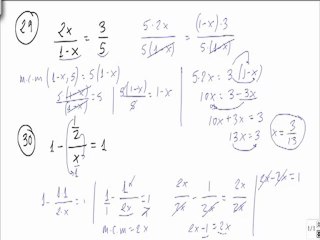 29
2x/(1-x) = 3/5
5·2x/5(1-x) = (1-x)·3/5(1-x)
m.c.m(1-x,5) = 5(1-x)
5(1-x)/(1-x) = 5 | 5(1-x)/5 = 1-x
5·2x = 3(1-x)
10x = 3-3x
10x+3x = 3
13x = 3
x = 3/13
30
1 - (1/2)/x = 1
1 - 1·1/2·x = 1
1/1 - 1/2x = 1/1
m.c.m = 2x
2x/2x - 1/2x = 2x/2x
2x-1 = 2x
2x-2x = 1